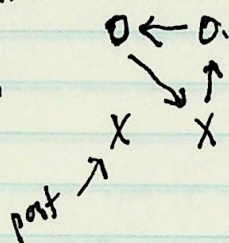 O O
X X
post